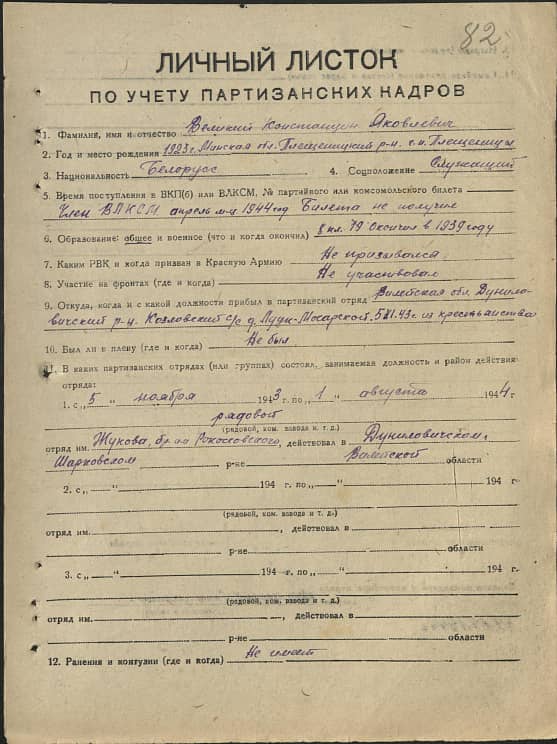 82
ЛИЧНЫЙ ЛИСТОК
ПО УЧЕТУ ПАРТИЗАНСКИХ КАДРОВ
1. Фамилия, имя и отчество Великий Константин Яковлевич
2. Год и место рождения 1923 г. Минская обл. Плещеницкий р-н. с.н. Плещеницы
3. Национальность Белорусс 4. Соцположение Служащий
5. Время поступления в ВКП(б) или ВЛКСМ, № партийного или комсомольского билета
Член ВЛКСМ апрель м-ц 1944 год Билета не получил
6. Образование: общее и военное (что и когда окончил) 8 кл. Окончил в 1939 году
7. Каким РВК и когда призван в Красную Армию Не призывался
8. Участие на фронтах (где и когда) Не участвовал
9. Откуда, когда и с какой должности прибыл в партизанский отряд Вилейская обл. Дунило-
вичский р-н. Козловский с/с д. 5.XI.43 г. из крестьянства
10. Был ли в плену (где и когда) Не был.
11. В каких партизанских отрядах (или группах) состоял, занимаемая должность и район действия
отряда:
1. с „5" ноября 1943 г. по „1" августа 1944 г.
рядовой
(рядовой, ком. взвода и т. д.)
отряд им. Жукова, бр. им Рокоссовского, действовал в Дуниловичском,
Шарковском р-не Вилейской области
2. с „ " 194 г. по „ " 194 г.
(рядовой, ком. взвода и т. д.)
отряд им. , действовал в
р-не области
3. с „ " 194 г. по „ " 194 г.
(рядовой, ком. взвода и т. д.)
отряд им. , действовал в
р-не области
12. Ранения и контузии (где и когда) Не имеет